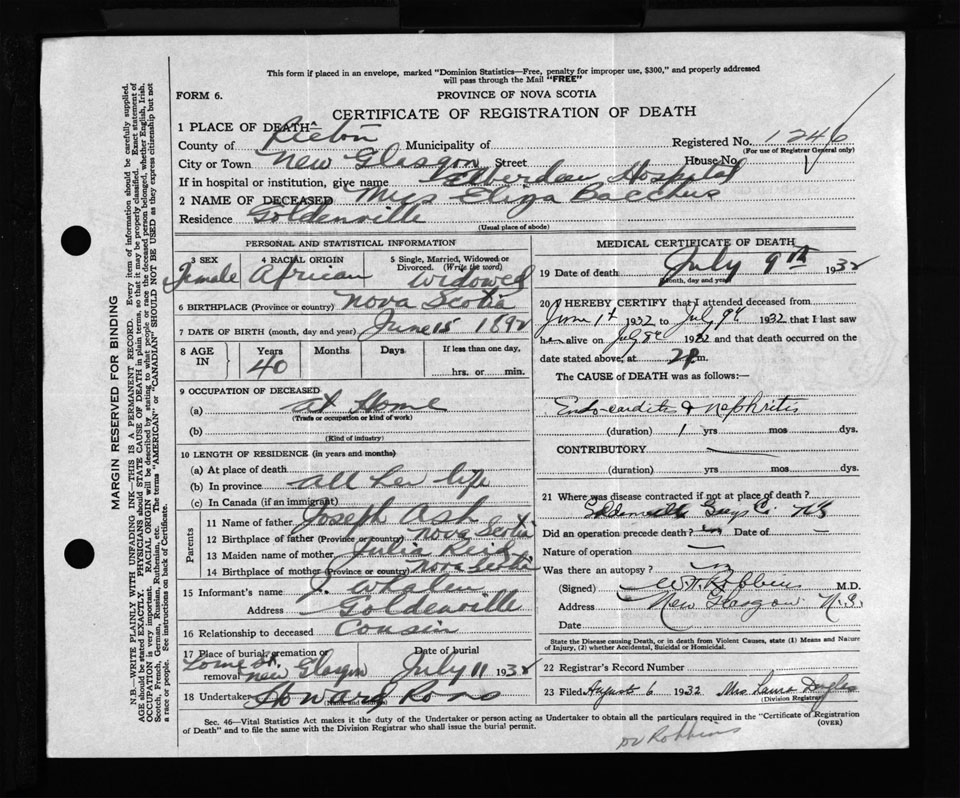 This form if placed in an envelope, marked "Dominion Statistics—Free, penalty for improper use, $300," and properly addressed
will pass through the Mail "FREE"
FORM 6.
PROVINCE OF NOVA SCOTIA
CERTIFICATE OF REGISTRATION OF DEATH
1 PLACE OF DEATH
County of Pictou Municipality of Registered No. 1246
(For use of Registrar General only)
City or Town New Glasgow Street House No.
If in hospital or institution, give name Aberdeen Hospital
2 NAME OF DECEASED Mrs Eliza Bacchus
Residence Goldenville
(Usual place of abode)
PERSONAL AND STATISTICAL INFORMATION
3 SEX 4 RACIAL ORIGIN 5 Single, Married, Widowed or Divorced. (Write the word)
Female African Widowed
6 BIRTHPLACE (Province or country) Nova Scotia
7 DATE OF BIRTH (month, day and year) June 15 1892
8 AGE IN Years Months Days If less than one day,
40 hrs. or min.
9 OCCUPATION OF DECEASED
(a) at Home
(Trade or occupation or kind of work)
(b)
(Kind of industry)
10 LENGTH OF RESIDENCE (in years and months)
(a) At place of death
(b) In province all her life
(c) In Canada (if an immigrant)
Parents
11 Name of father Joseph Ash
12 Birthplace of father (Province or country) Nova Scotia
13 Maiden name of mother Julia Reid
14 Birthplace of mother (Province or country) Nova Scotia
15 Informant's name J. Whalen
Address Goldenville
16 Relationship to deceased Cousin
17 Place of burial, cremation or removal Date of burial
Lorne St. New Glasgow July 11 1932
18 Undertaker Howard Ross
(Name and address)
MEDICAL CERTIFICATE OF DEATH
19 Date of death July 9th 1932
(Month, day and year)
20 I HEREBY CERTIFY that I attended deceased from
June 1st 1932 to July 9th 1932 that I last saw
her alive on July 8th 1932 and that death occurred on the
date stated above, at 2 P.m.
The CAUSE of DEATH was as follows:—
Endocarditis & Nephritis
(duration) 1 yrs mos dys.
CONTRIBUTORY
(duration) yrs mos dys.
21 Where was disease contracted if not at place of death?
Goldenville Guys Co. N.S.
Did an operation precede death? no Date of
Nature of operation
Was there an autopsy?
(Signed) Robbins M.D.
Address New Glasgow N.S.
Date
State the Disease causing Death, or in death from Violent Causes, state (1) Means and Nature
of Injury, (2) whether Accidental, Suicidal or Homicidal.
22 Registrar's Record Number
23 Filed August 6 1932 Mrs Laura Douglas
(Division Registrar)
Sec. 46—Vital Statistics Act makes it the duty of the Undertaker or person acting as Undertaker to obtain all the particulars required in the "Certificate of Registration
of Death" and to file the same with the Division Registrar who shall issue the burial permit. (OVER)
Dr Robbins
MARGIN RESERVED FOR BINDING
N.B.—WRITE PLAINLY WITH UNFADING INK—THIS IS A PERMANENT RECORD. Every item of information should be carefully supplied.
AGE should be stated EXACTLY. PHYSICIANS should STATE CAUSE OF DEATH in plain terms, so that it may be properly classified. Exact statement of
OCCUPATION is very important. RACIAL ORIGIN will be described by stating to what people or race the deceased person belonged, whether English, Irish,
Scotch, French, German, Russian, Ruthenian, etc. The terms "AMERICAN" or "CANADIAN" SHOULD NOT BE USED as they express citizenship but not
a race or people. See instructions on back of Certificate.